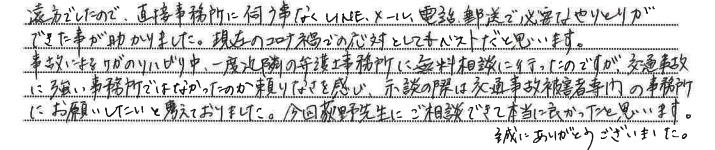 遠方でしたので、直接事務所に伺う事なくLINE、メール、電話、郵送で必要なやりとりが
できた事が助かりました。現在のコロナ禍での応対としてもベストだと思います。
事故によるケガのリハビリ中、一度近隣の弁護士事務所に無料相談に行ったのですが、交通事故
に強い事務所ではなかったのか頼りなさを感じ、示談の際は交通事故被害者専門の事務所
にお願いしたいと考えておりました。今回荻野先生にご相談できて本当に良かったと思います。
誠にありがとうございました。